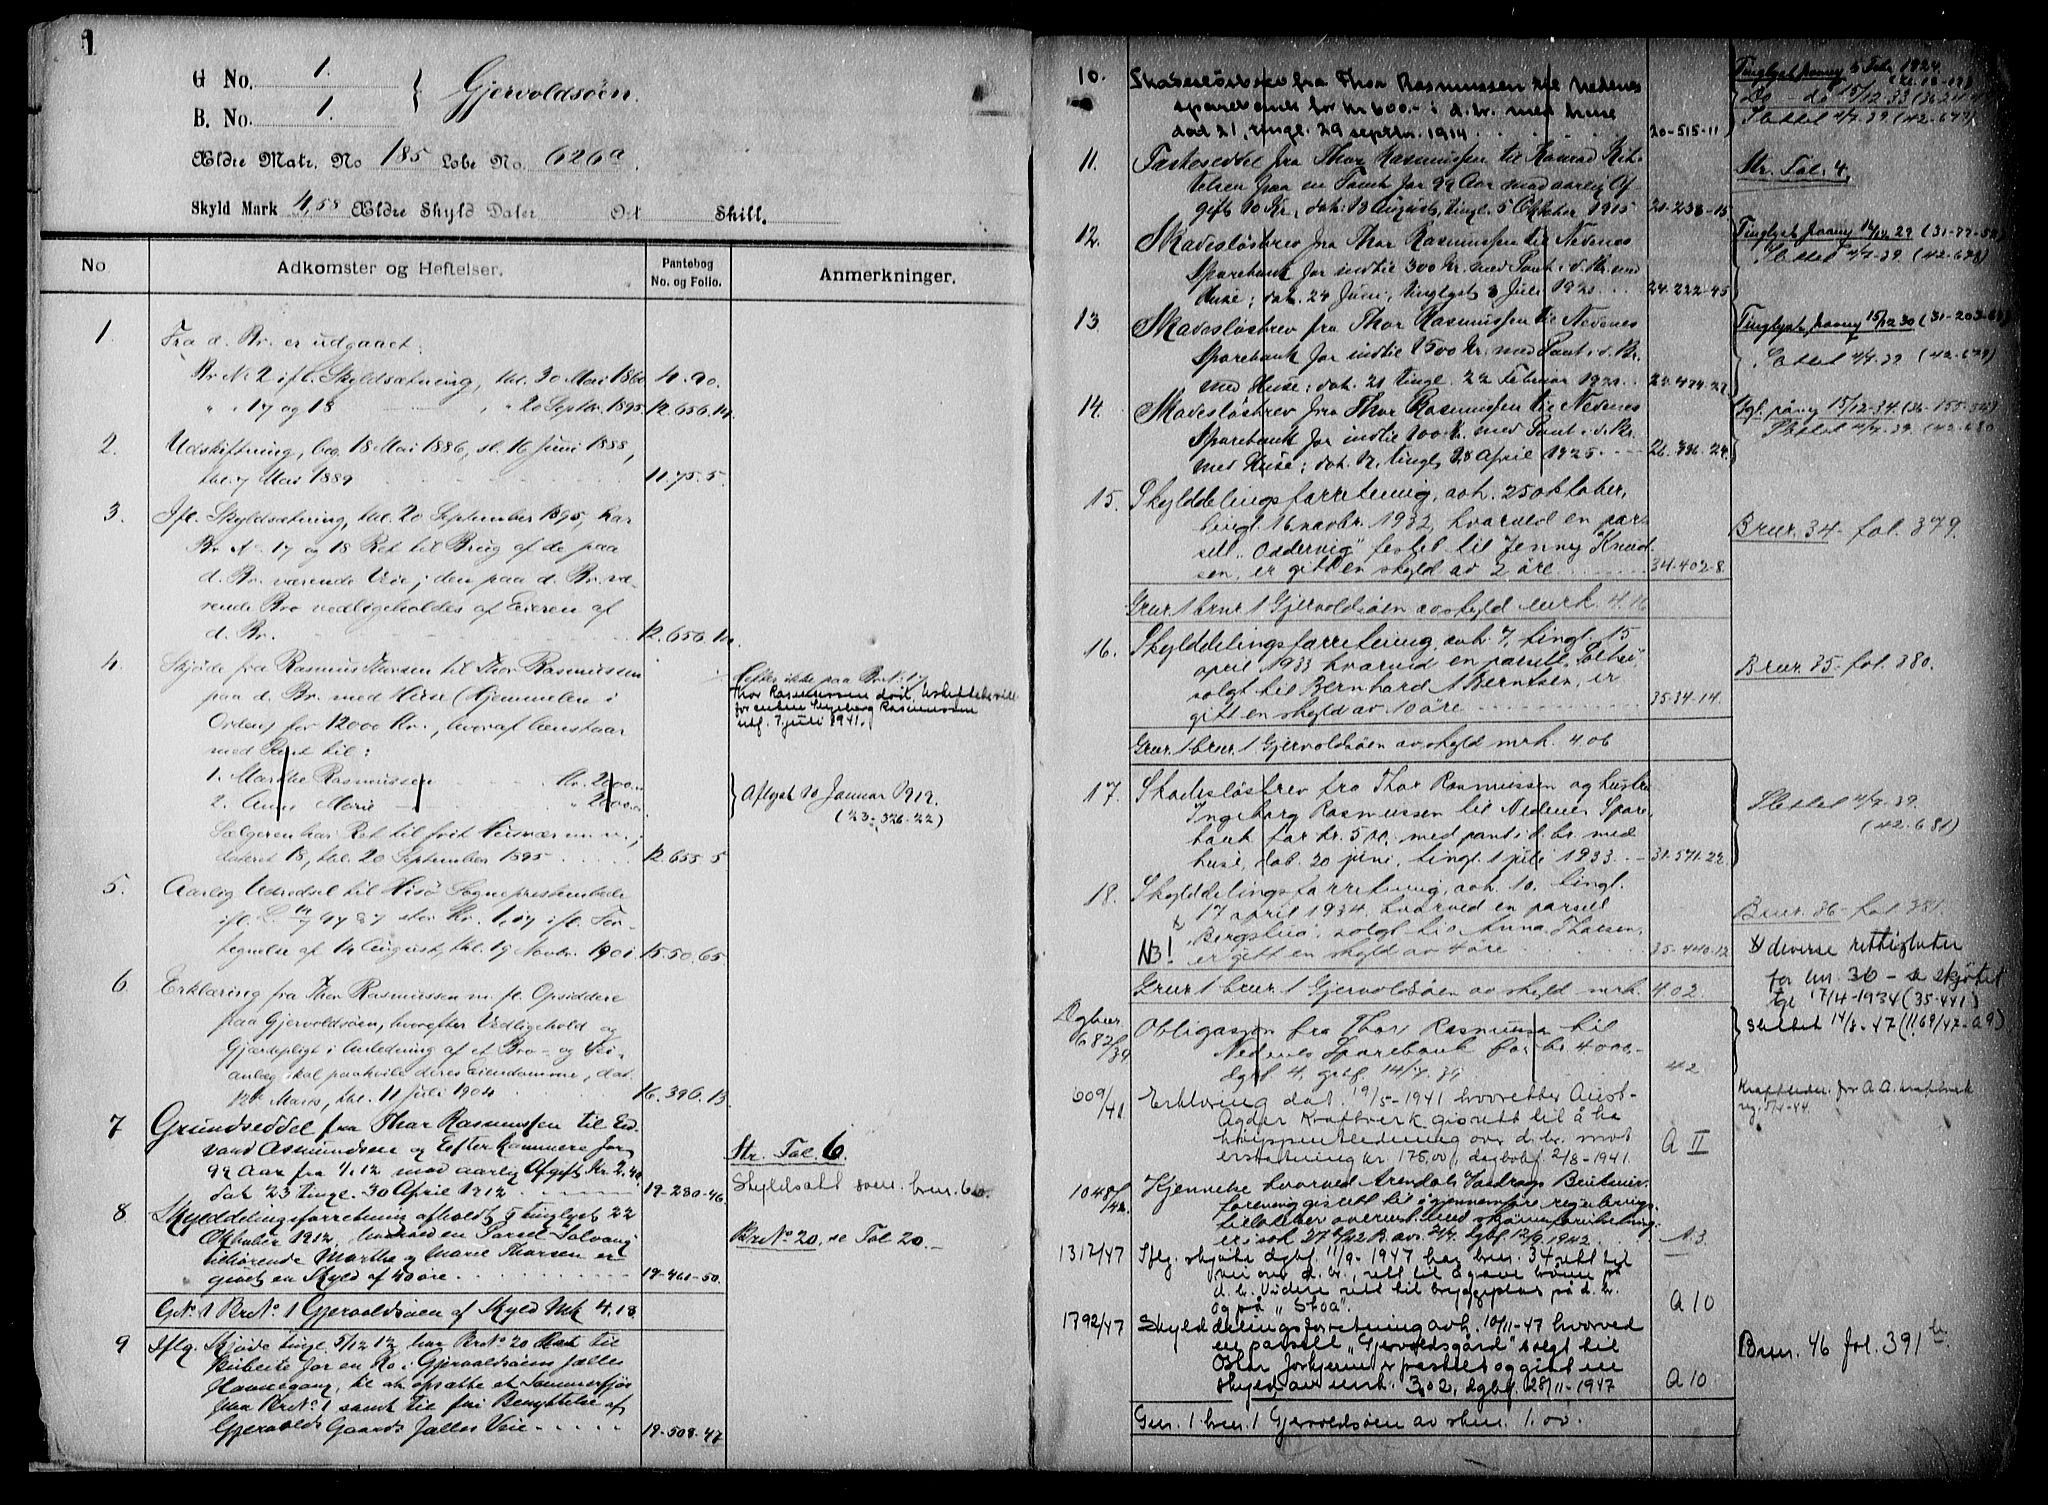 1
G No. 1.
B. No. 1.
Gjervoldsøen.
Ældre Matr. No 185 Løbe No. 626a
Skyld Mark 4,58 Ældre Skyld Daler Ort Skill.
No
Adkomster og Heftelser.
Pantebog
No. og Folio.
Anmerkninger.
1. Fra d. Br. er udgaaet:
Br. No 2 ifl. Skyldsætning, thl. 30 Mai 1860 4.90.
" " 17 og 18 " 20 Septbr. 1895 12.656.14
2. Udskiftning, beg. 18 Mai 1886, sl. 16 Juni 1888,
thl. 7 Mai 1889 11.75.5.
3. Ifl. Skyldsætning, thl. 20 September 1895, har
Br. No 17 og 18 Ret til Brug af de paa
d. Br. værende Veie; den paa d. Br. væ-
rende Bro vedligeholdes af Eieren af
d. Br. 12.656.14
4. Skjøde fra Rasmus Thorsen til Thor Rasmussen
paa d. Br. med Huse (Hjemmelen i
Orden) for 12000 Kr., hvoraf indestaar
med Pant til:
1. Marthe Rasmussen Kr. 2000.
2. Anne Marie " 2000.
Sælgeren har Ret til frit Husvær m. v.;
dateret 18, thl. 20 September 1895 12.655.5
Hefter ikke paa Br. No 17
Thor Rasmussen død. Uskiftebevill.
for enken Ingeborg Rasmussen
utf. 7 juli 1941.
Aflyst 10 Januar 1912.
(23-326-22)
5. Aarlig Udredsel til Hisø Sogneprestembede
stor Kr. 1,07 ifl. For-
tegnelse af 14 August, thl. 19 Novbr. 1901 15.50.65
6. Erklæring fra Thor Rasmussen m. fl. Opsiddere
paa Gjervoldsøen, hvorefter Vedligehold og
Gjærdepligt i Anledning af et Bro- og Vei-
anlæg skal paahvile deres Eiendomme, dat.
12 Marts, thl. 11 Juli 1904 16.396.13
7 Grundseddel fra Thor Rasmussen til Ed-
vard Asmundsen og Efterkommere for
99 Aar fra 1/1 12 mod aarlig Afgift Kr. 2.40
dat 23 tingl. 30 April 1912 19-280-46
Str. Fol. 6.
Skyldsatt som bnr. 60.
8 Skylddelingsforretning afholdt 5 tinglyst 22
Oktober 1912, hvorved en Parsel Solvang
tilhørende Marthe og Marie Thorsen er
givet en Skyld af 40 øre 19-461-50.
Br No. 20. se Fol 20.
G No. 1 Br No. 1 Gjervoldsøen af Skyld Mk 4.18.
9 Iflg. Skjøde tingl. 5/12 12 har Br No. 20 Ret til
Gjervoldsøens fælles
Havnegang, til at opsætte et Sommerfjøs
paa Br No. 1 samt til fri Benyttelse af
Gjervolds Gaards Fælles Veie 19-508-47
10. Skadesløsbrev fra Thor Rasmussen til Nedenes
sparebank for kr 600.- i d. br. med huse
dat 21, tingl. 29 septbr. 1914 20-515-11
Tinglyst paany 5 Feb 1924
Do do 15/12 33
Slettet 4/7-39 (42-677)
11. Festeseddel fra Thor Rasmussen til Konrad Kit-
telsen paa en Tomt for 99 Aar mod aarlig Af-
gift 10 Kr., dat. 13 August, tingl. 5 Oktober 1915 21-238-15
Str. Fol. 4.
12. Skadesløsbrev fra Thor Rasmussen til Nedenes
Sparebank for indtil 300 Kr. med Pant i d. Br. med
Huse; dat. 24 Juni, tinglyst 3 Juli 1920 24-222-45
Slettet 4/7-39. (42-678)
13. Skadesløsbrev fra Thor Rasmussen til Nedenes
Sparebank for indtil 1500 Kr. med Pant i d. Br.
med Huse; dat. 21 tingl. 22 Februar 1921
Tinglyst paany 15/12 30 (31-203-
Slettet 4/7-39 (42-679)
14. Skadesløsbrev fra Thor Rasmussen til Nedenes
Sparebank for indtil 100 Kr. med Pant i d. Br.
med Huse; dat. 17, tingl. 18 April 1925 26-336-24.
Tgl. påny 15/12-34
Slettet 4/7-39. (42-680
15. Skylddelingsforretning, avh. 25 oktober,
tingl. 16 novbr. 1932, hvorved en par-
sell "Oddervig" festet til Jenny Knud-
sen, er gitt en skyld av 2 øre 34-402-8
Brnr. 34- fol. 379.
Gnr 1 brnr 1 Gjervoldsøen av skyld mrk. 4.16
16. Skylddelingsforretning, avh. 7, tingl. 15
april 1933 hvorved en parsell
solgt til Bernhard A Berntsen, er
gitt en skyld av 10 øre 35-34-14.
Brnr. 35- fol. 380.
Gnr. 1 brnr. 1 Gjervoldsøen av skyld mrk. 4.06
17. Skadesløsbrev fra Thor Rasmussen og hustru
Ingeborg Rasmussen til Nedenes Spare-
bank for kr. 500, med pant i d. br. med
huse, dat. 20 juni, tingl. 1 juli 1933 31-571-22
Slettet 4/7-39.
(42-681)
18. Skylddelingsforretning, avh. 10, tingl.
17 april 1934, hvorved en parsell
x) NB! solgt til Anna Thorsen,
er gitt en skyld av 4 øre 35-440-12
Brnr. 36- fol. 381.
x) diverse rettigheter
for bnr. 36 - se skjøtet
tgl 17/4-1934 (35-441)
Gnr 1 brnr 1 Gjervoldsøen av skyld mrk. 4.02.
Dgbnr
682/39
Obligasjon fra Thor Rasmussen til
Nedenes Sparebank for kr 4000,-
dgbf 4, gebf. 14/7. 39 42
Slettet 14/3-47 (1169/47-A9)
609/41
Erklæring dat. 19/5-1941 hvoretter Aust-
Agder Kraftverk gis rett til å ha
høispentledning over d. br. mot
erstatning kr. 175,00, dagbokf 2/8-1941. A II
Kraftleder. for A. A. kraftverk
1048/42
Kjennelse hvorved Arendals Vasdrags Brukseier-
forening gis rett til å gjennemføre regulerings-
dgbf 12/9. 1942. A.3
1312/47
Iflg. skjøte dgbf. 11/9-1947 har bnr. 34 rett til
vei over d. br., rett til å grave brønn på
d. br. Videre rett til bryggeplass på d. br.
og på "Skoa". A 10
1792/47
Skylddelingsforretning avh. 10/11-47 hvorved
en parsell "Gjervoldsgård" solgt til
Oskar er fastsett og gitt en
skyld av mrk. 3,02, dgbf. 28/11-1947 A 10
Brnr. 46 fol. 391 b
Gnr. 1 bnr. 1 Gjervoldsøen av skm. 1.00.